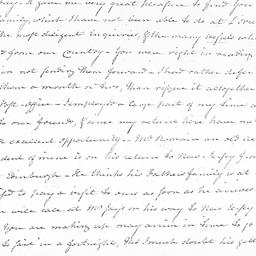 it gave me very great pleasure to find you
family, which I have not been able to do at
the most diligent inquiries, & the many
from our Country - You were right in sending
in not sending them forward - I had rather defer
them a month or two, than risque it altogether
Post-office - I employed a large part of my time
to our Grounds, & since my return here have
excellent opportunity - Mr an old
of mine is on his return to New-Jersey from
Edinburgh - He thinks his Father's family is at
to pay a visit to ours as soon as he arrives
on his way to New Jersey
You are making up may arrive in time to go
to sail in a fortnight, tho' I much doubt his